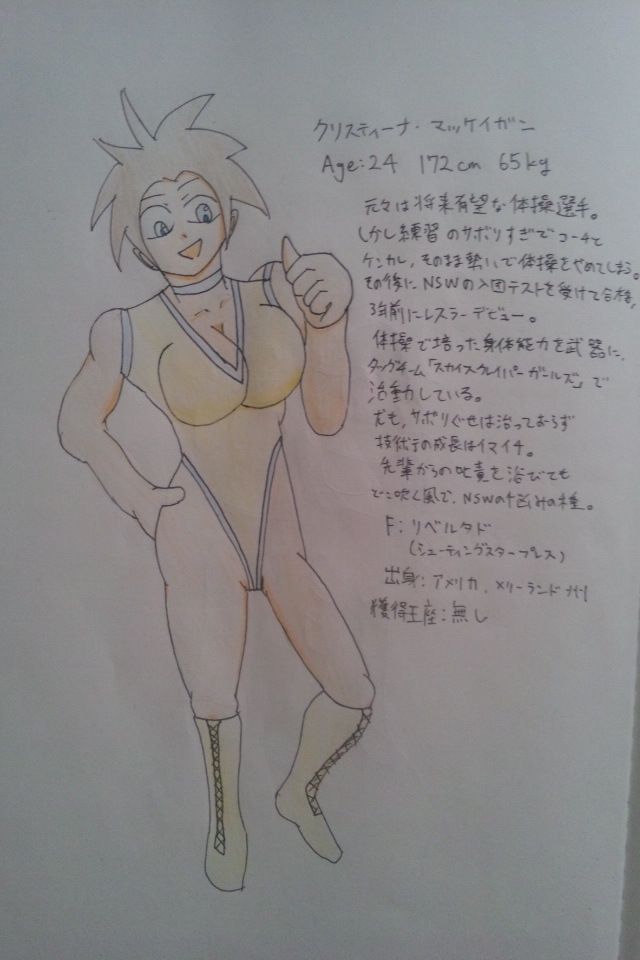 クリスティーナ・マッケイガン
Age:24 172cm 65kg
元々は将来有望な体操選手。
しかし練習のサボりすぎでコーチと
ケンカし、そのまま勢いで体操をやめてしまう。
その後にNSWの入団テストを受けて合格、
3年前にレスラーデビュー。
体操で培った身体能力を武器に、
タッグチーム「スカイスクレイパーガールズ」で
活動している。
尤も、サボりぐせは治っておらず
技術の成長はイマイチ。
先輩からの叱責を浴びても
どこ吹く風で、NSWの悩みの種。
F:リベルタド
(シューティングスタープレス)
出身:アメリカ、メリーランド州
獲得王座:無し